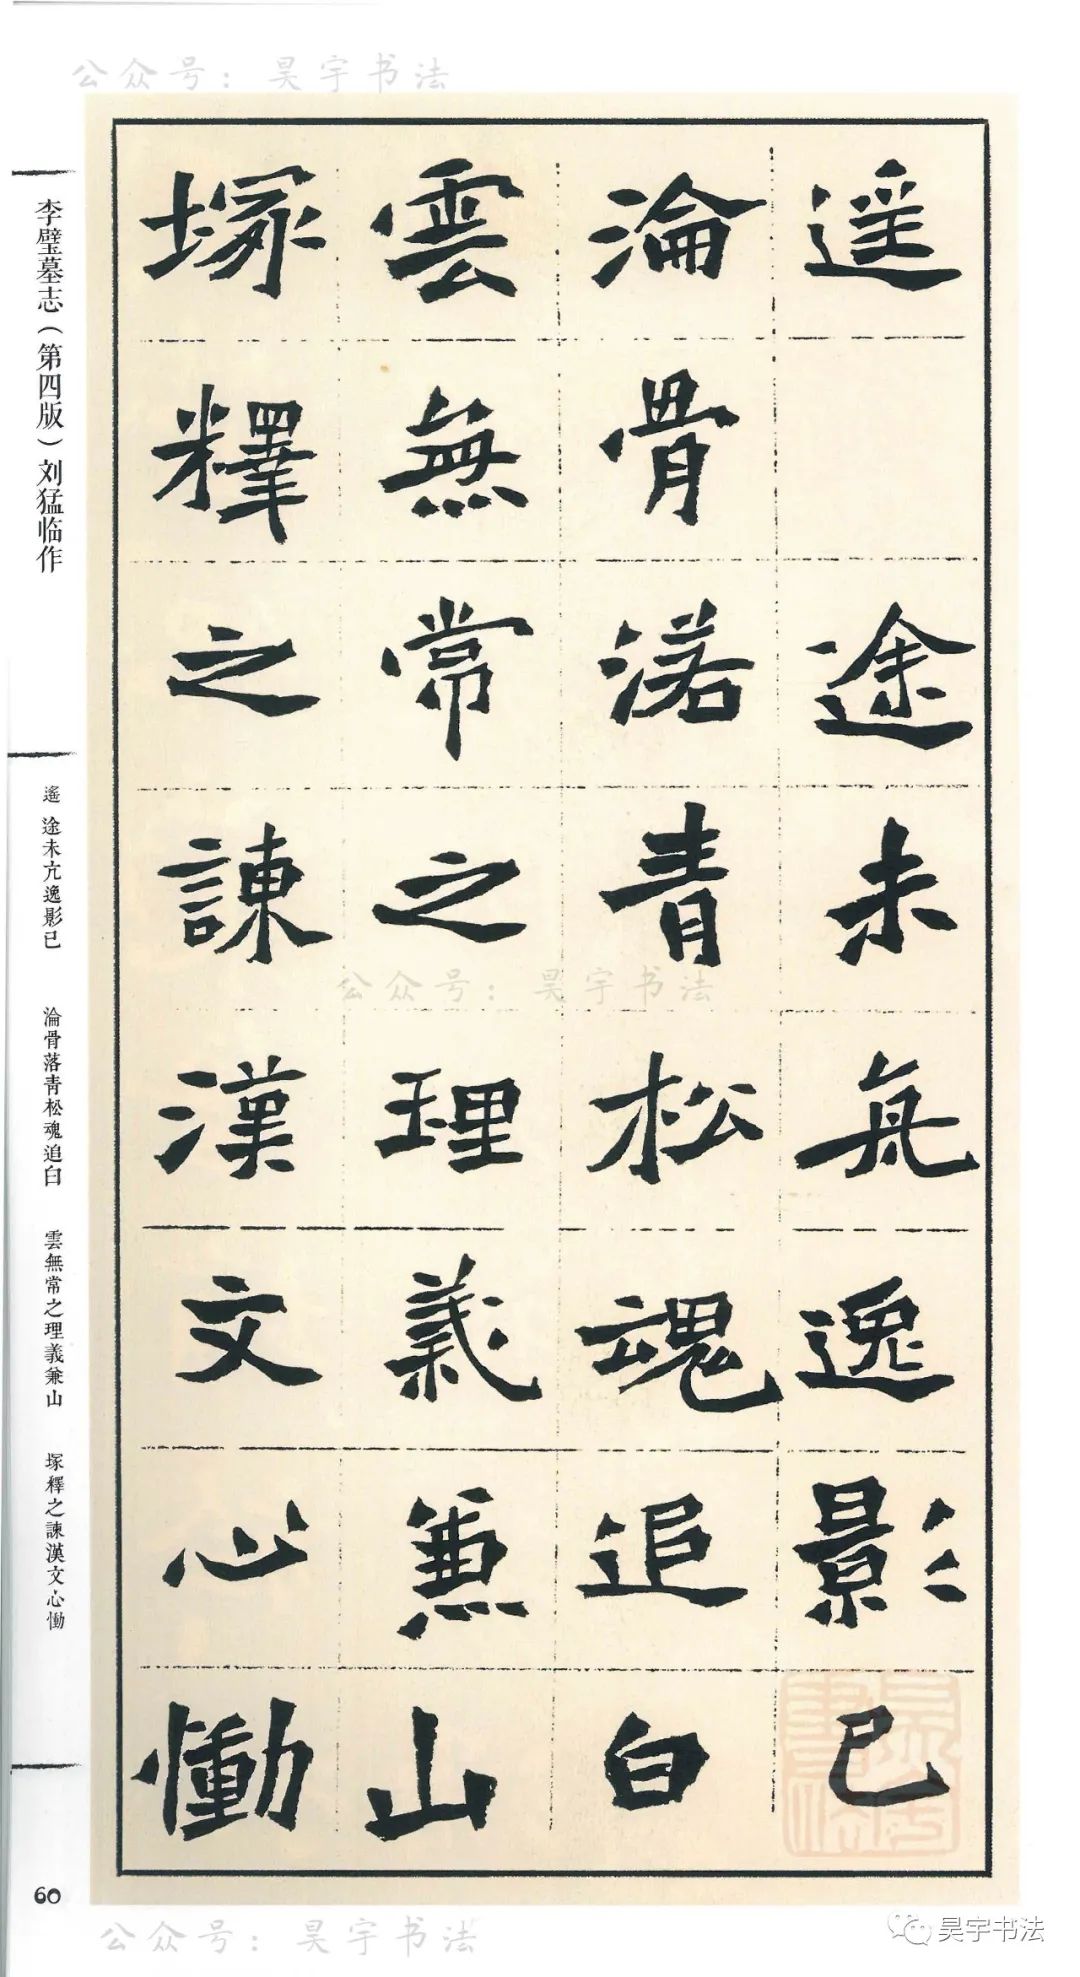 公众号：昊宇书法
遥 途未亢逸影已
淪骨落青松魂追白
雲無常之理義兼山
塚釋之諫漢文心慟
公众号：昊宇书法
李璧墓志（第四版）刘猛临作
遙 途未亢逸影已
淪骨落青松魂追白
雲無常之理義兼山
塚釋之諫漢文心慟
60
公众号：昊宇书法
昊宇书法